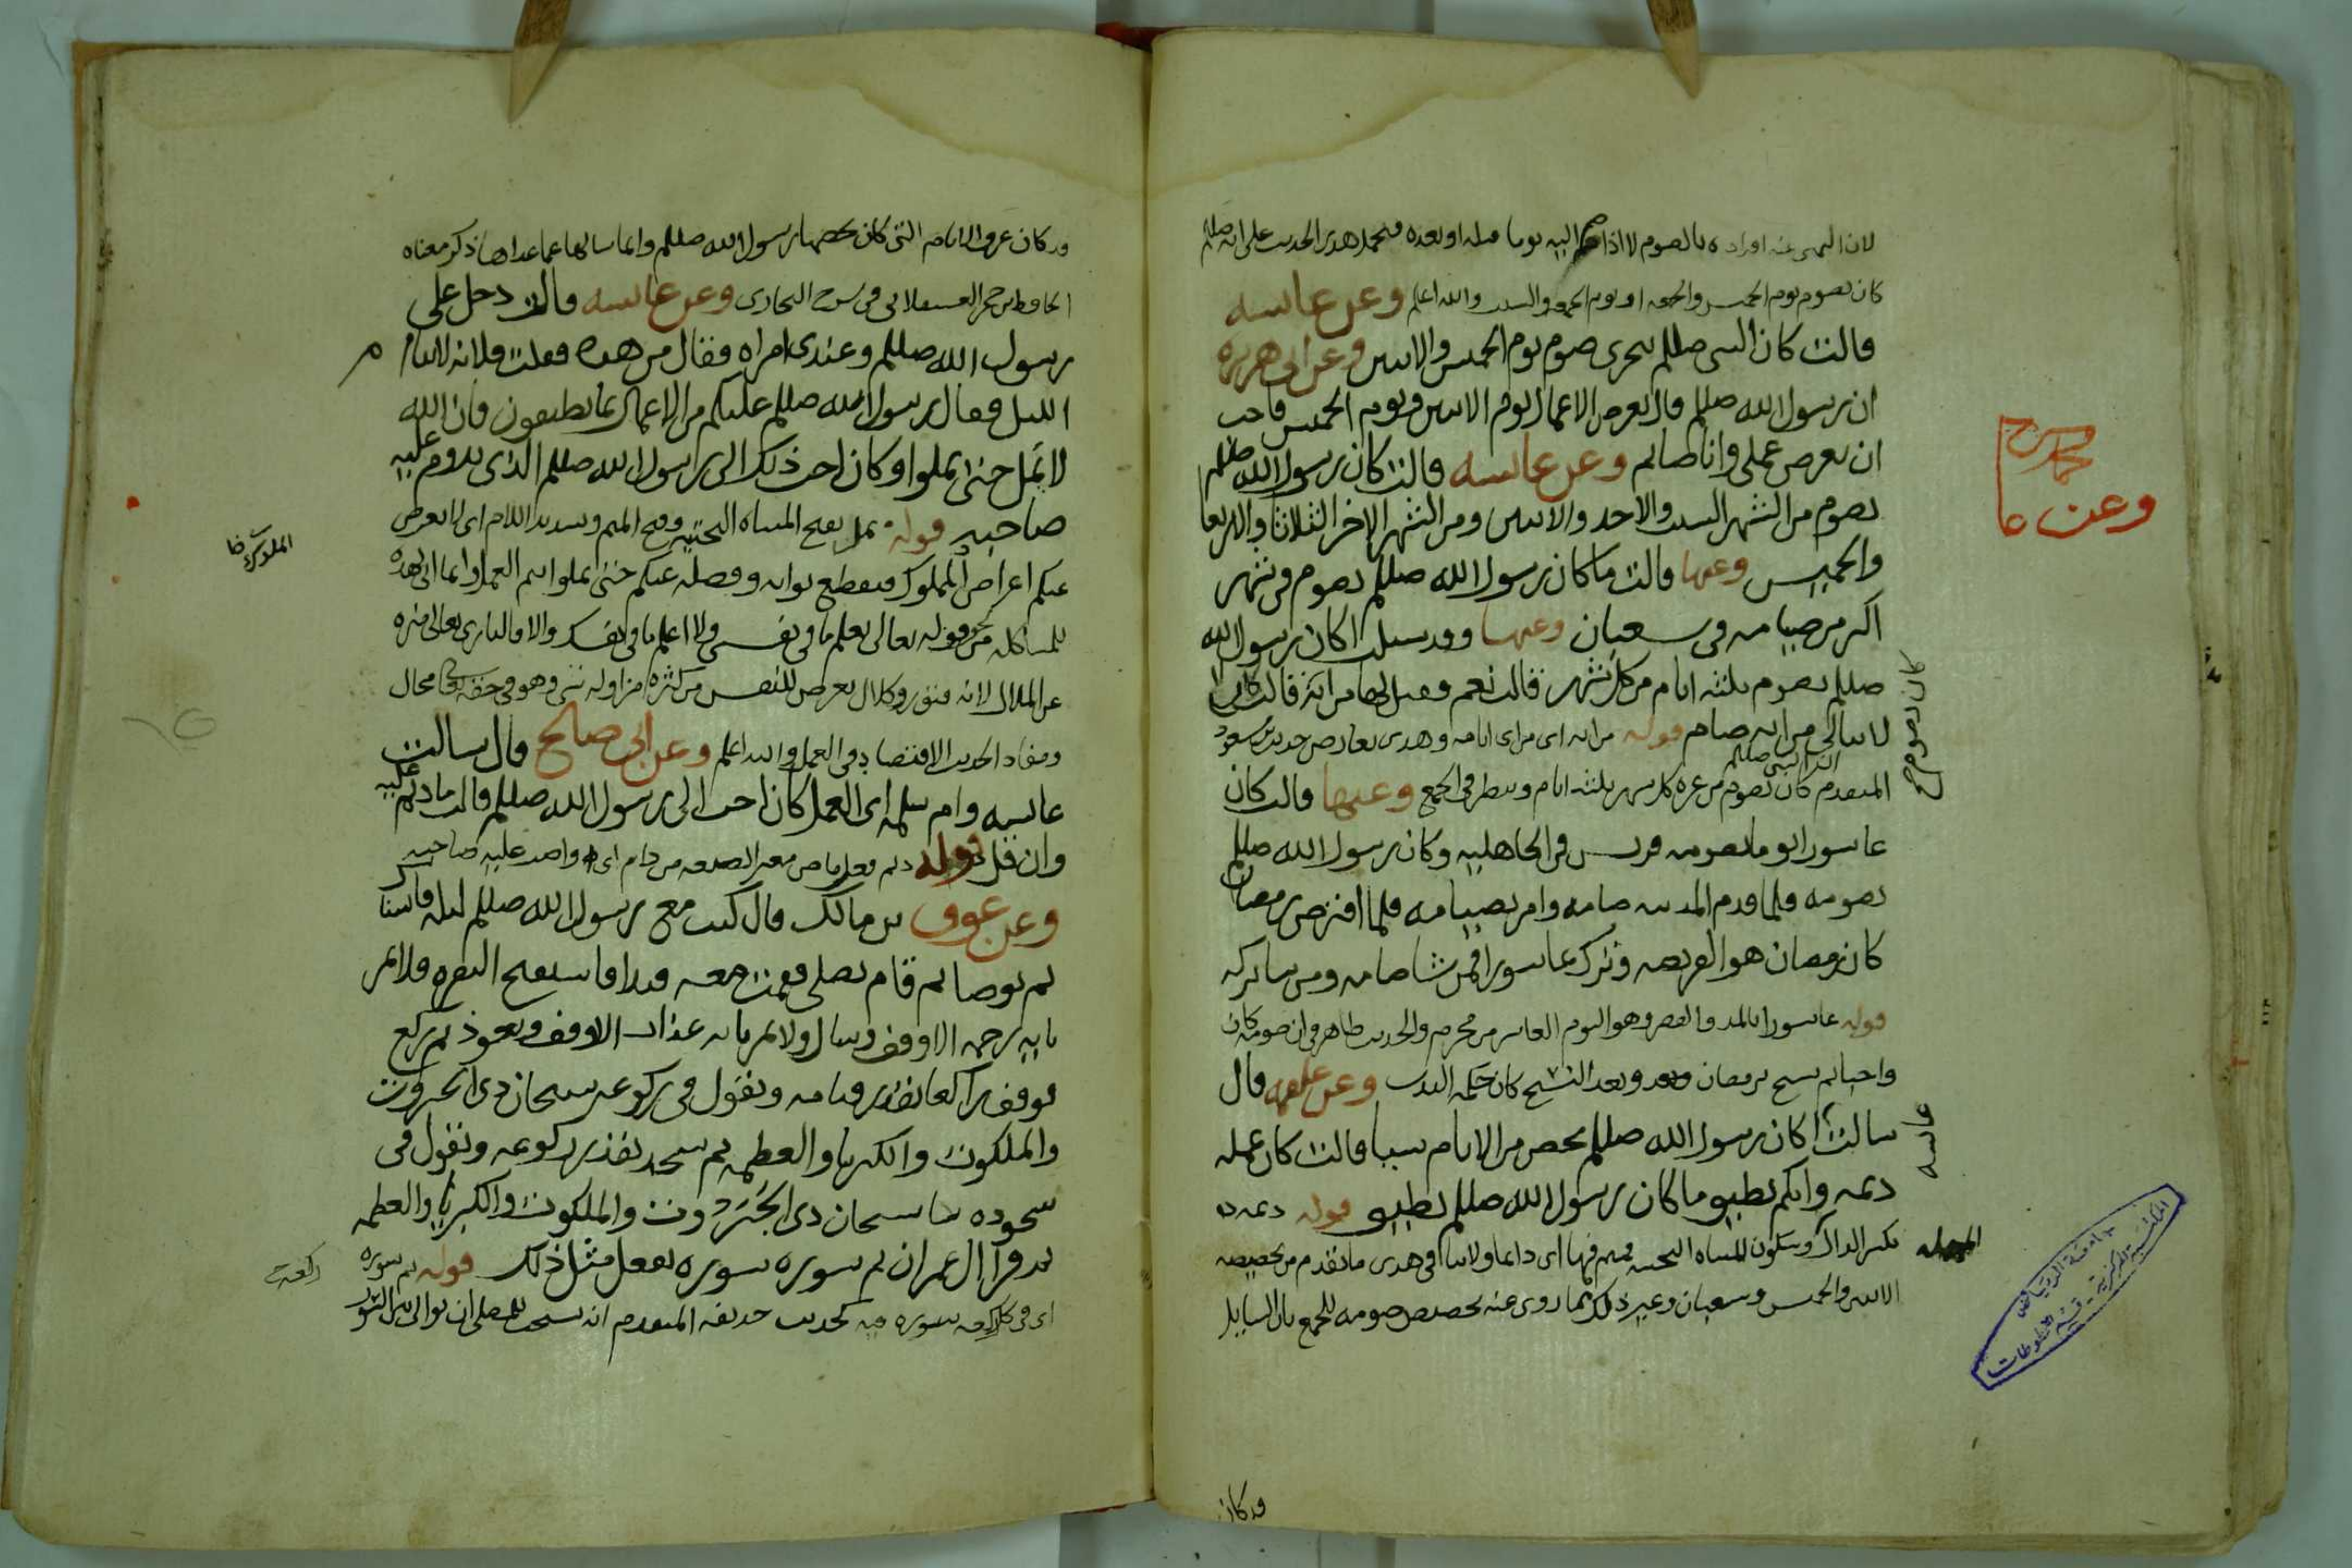 لان النهى عنه افراده بالصوم لا اذا ضم اليه يوما قبله او بعده فيحمل هذى الحديث على انه صللم
كان يصوم يوم الخميس والجمعه او يوم الجمعه والسبت والله اعلم وعن عايشه
قالت كان النبى صللم يتحرى صوم يوم الخميس والاثنين وعن ابى هريره
ان رسول الله صللم قال تعرض الاعمال يوم الاثنين ويوم الخميس فاحب
ان يعرض عملى وانا صايم وعن عايشه قالت كان رسول الله صللم
يصوم من الشهر السبت والاحد والاثنين ومن الشهر الاخر الثلاثا والاربعا
والخميس وعنها قالت ما كان رسول الله صللم يصوم فى شهر
اكثر من صيامه فى شعبان وعنها وقد سيلت اكان رسول الله
صللم يصوم ثلثه ايام من كل شهر قالت نعم وقيل لها من ايه قالت كان
لا يبالى من ايه صام قوله من ايه اى من اى ايامه وهذى يعارض حديث بن مسعود
المتقدم كان النبى صللم يصوم من غره كل شهر ثلثه ايام وينظر فى الجمع وعنها قالت كان
عاشورا يوما تصومه قريش فى الجاهليه وكان رسول الله صللم
يصومه فلما قدم المدينه صامه وامر بصيامه فلما افترض رمضان
كان رمضان هو الفريضه وترك عاشورا فمن شا صامه ومن شا تركه
قوله عاشورا بالمد والقصر وهو اليوم العاشر من محرم والحديث ظاهر فى ان صومه كان
واجبا ثم نسخ برمضان وبعد النسخ كان حكمه الندب وعن علقمه قال
سالت عايشه اكان رسول الله صللم يخص من الايام شيا قالت كان عمله
ديمه وايكم يطيق ما كان رسول الله صللم يطيق قوله ديمه
بكسر الدال المهمله وسكون المثناه التحتيه فميم فها اى دايما ولا ينافى هذى ما تقدم من تخصيصه
الاثنين والخميس وشعبان وغير ذلك بما روى عنه تخصيص صومه للجمع بان السايل
وقد كان
وعن عا
كان يصوم
جامعة الرياض
المكتبة المركزية - قسم المخطوطات
قد كان عرف الايام التى كان يخصها رسول الله صللم وانما سالها عما عداها ذكر معناه
الحافظ بن حجر العسقلانى فى شرح البخارى وعن عايشه قالت دخل على
رسول الله صللم وعندى امراه فقال من هذه فقلت فلانه لا تنام
الليل فقال رسول الله صللم عليكم من الاعمال بما تطيقون فان الله
لا يمل حتى تملوا وكان احب ذلك الى رسول الله صللم الذى يدوم عليه
صاحبه قوله يمل بفتح المثناه التحتيه وفتح الميم وتشديد اللام اى لا يعرض
عنكم اعراض المملوك فيقطع ثوابه وفضله عنكم حتى تملوا انتم العمل وانما اتى بهذه
للمشاكله من نحو قوله تعالى تعلم ما فى نفسى ولا اعلم ما فى نفسك والا فالبارى تعالى منزه
عن الملال لانه فتور وكلال يعرض للنفس من كثره مزاوله شى وهو فى حقه تعالى محال
ومفاد الحديث الاقتصاد فى العمل والله اعلم وعن ابى صالح قال سالت
عايشه وام سلمه اى العمل كان احب الى رسول الله صللم قالت ما ديم عليه
وان قل قوله ديم فعل ماض مغير الصيغه من دام اى واضب عليه صاحبه
وعن عوف بن مالك قال كنت مع رسول الله صللم ليله فاستاك
ثم توضا ثم قام يصلى فقمت معه فبدا فاستفتح البقره فلا يمر
بايه رحمه الا وقف وسال ولا يمر بايه عذاب الا وقف وتعوذ ثم ركع
فوقف راكعا بقدر قيامه ويقول فى ركوعه سبحان ذى الجبروت
والملكوت والكبريا والعظمه ثم سجد بقدر ركوعه ويقول فى
سجوده سبحان ذى الجبروت والملكوت والكبريا والعظمه
ثم قرا ال عمران ثم سوره سوره يفعل مثل ذلك قوله ثم سوره
اى فى كل ركعه سوره فيه كحديث حذيفه المتقدم انه يستحب للمصلى ان يوالى بين السور
ركعه